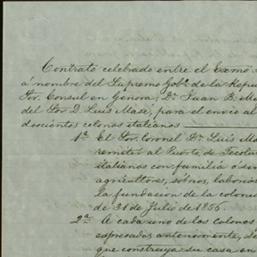 Contrato celebrado entre el Exmo
á nombre del Supremo Gobº de la Repu
Sor. Consul en Genova, Dn Juan B. M
del Sor D. Luis Masi, para el envio al
doscientos colonos italianos
1ª El Sor Coronel Dn Luis Ma
remitirá al Puerto de
italianos con familia ó sin
agricultores, sóbrios, laborio
la fundacion de la colonia
de 31 de Julio de 1856.
2ª A cada uno de los colonos
espresados anteriormente, de
que construya su casa en